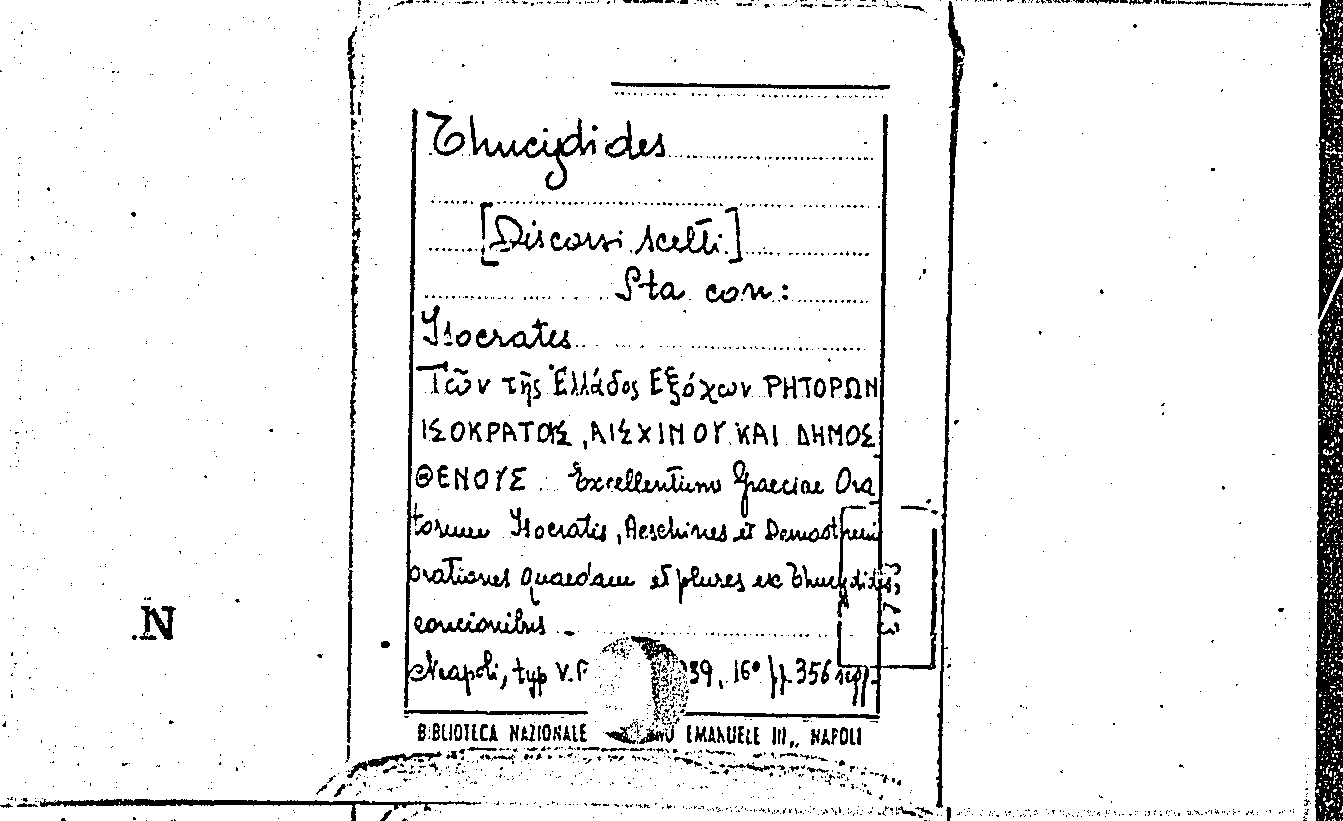 Thucydides
[Discorsi scelti]
Sta con:
Isocrates
Τῶν τῆς Ἑλλάδος Ἐξόχων ΡΗΤΟΡΩΝ
ΙΣΟΚΡΑΤΟΥΣ, ΑΙΣΧΙΝΟΥ ΚΑΙ ΔΗΜΟΣ
ΘΕΝΟΥΣ. Excellentium Graeciae Ora
torum Isocratis, Aeschines et Demostheni
orationes quaedam et plures ex Thucydidis
concionibus.
Neapoli, typ V. 39, 16° pp. 356 segg.
BIBLIOTECA NAZIONALE EMANUELE III,, NAPOLI
N